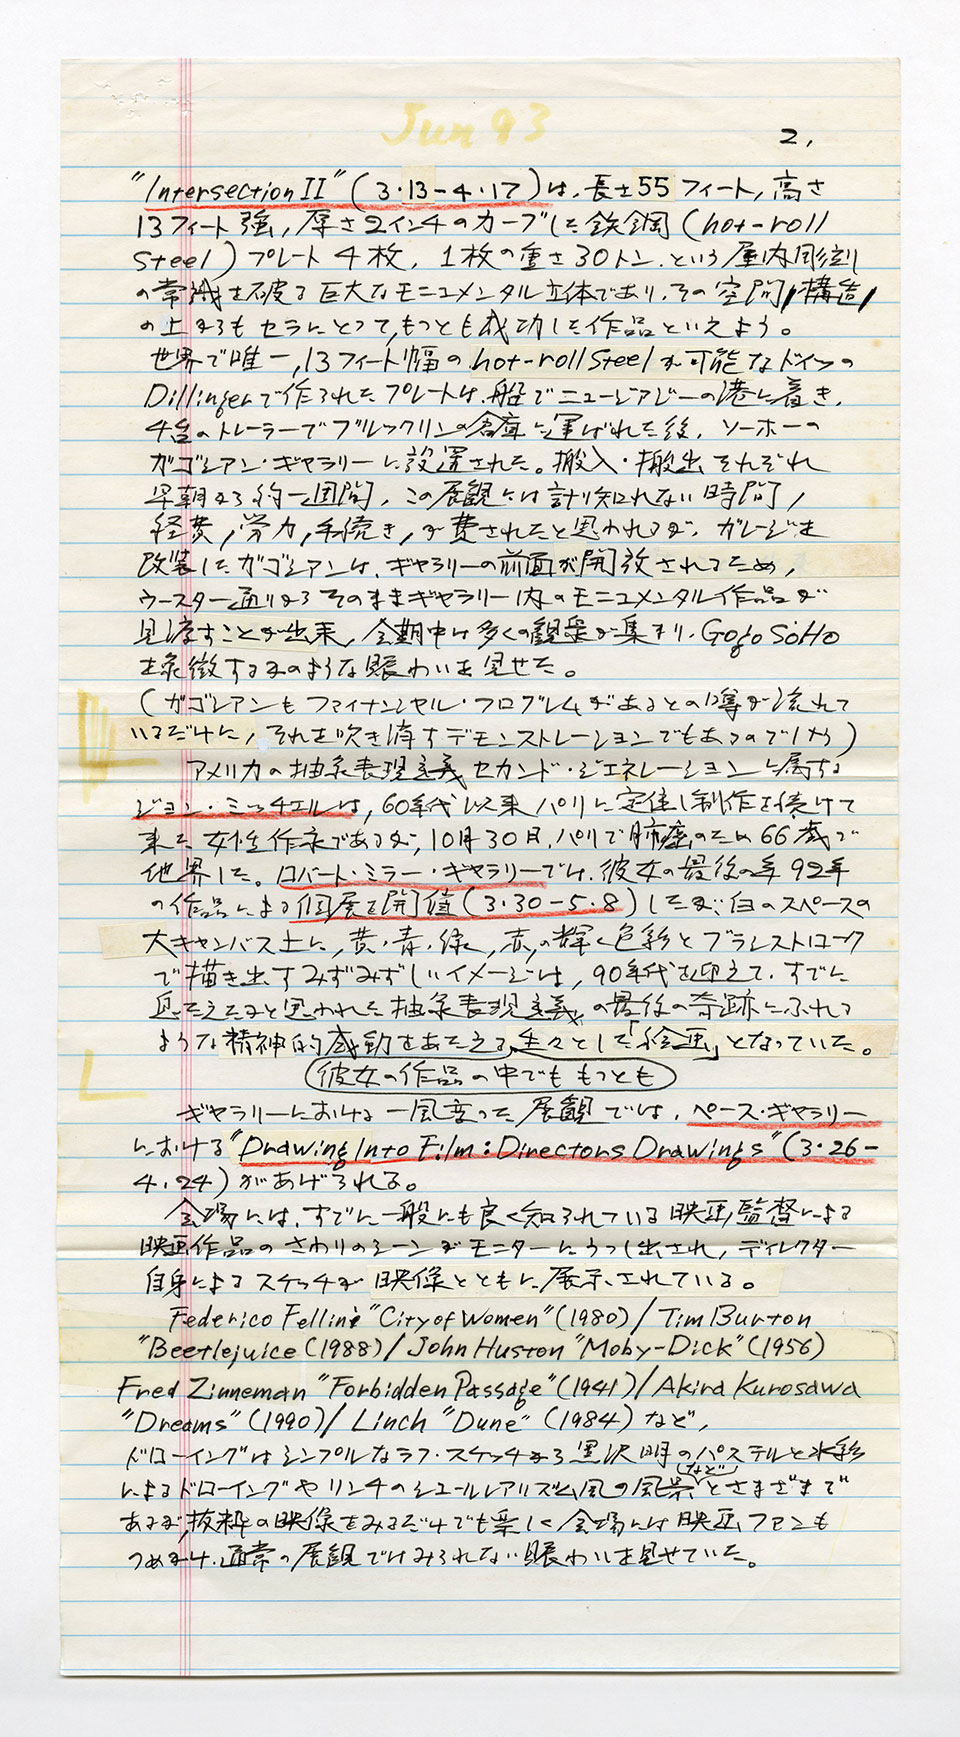 Jun 93
2.
"Intersection II" (3・13-4・17) は、長さ55フィート, 高さ
13フィート強, 厚さ2インチのカーブした鉄鋼 (hot-roll
Steel) プレート4枚, 1枚の重さ30トン. という屋内彫刻
の常識を破る巨大なモニュメンタル立体であり、その空間,構造,
の上からもセラにとって,もっとも成功した作品といえよう。
世界で唯一, 13フィート幅のhot-roll Steelが可能なドイツの
Dillingerで作られたプレートは、船でニュージャジーの港に着き,
4台のトレーラーでブルックリンの倉庫に運ばれた後, ソーホーの
ガゴシアン・ギャラリーに設置された。搬入・搬出それぞれ
早朝から約一週間, この展観には計り知れない時間,
経費,労力,手続き,が費されたと思われるが, ガレージを
改装したガゴシアンは、ギャラリーの前面が開放されるため,
ウースター通りからそのままギャラリー内のモニュメンタル作品が
見渡すことが出来, 会期中は多くの観衆が集まり, Gogo SoHo
を象徴するかのような賑わいを見せた。
(ガゴシアンもファイナンシャル・プロブレムがあるとの噂が流れて
いるだけに, それを吹き消すデモンストレーションでもあるのでしょう)
アメリカの抽象表現主義セカンド・ジェネレーションに属する
ジョン・ミッチェルは, 60年代以来パリに定住し制作を続けて
来た女性作家であるが, 10月30日, パリで肺癌のため66歳で
他界した。ロバート・ミラー・ギャラリーでは、彼女の最後の年92年
の作品による個展を開催(3・30-5・8)したが、白のスペースの
大キャンバス上に, 黄・青・緑, 赤,の輝く色彩とブラシストローク
で描き出すみずみずしいイメージは, 90年代を迎えて、すでに
見たえたると思われた抽象表現主義,の最後の奇跡にふれる
ような精神的感動をあたえる、生々とした「絵画」となっていた。
彼女の作品の中でももっとも
ギャラリーにおける一風変った展観では, ペース・ギャラリー
における"Drawing Into Film: Directors Drawings" (3・26-
4.24) があげられる。
会場には、すでに一般にも良く知られている映画監督による
映画作品のさわりのシーンがモニターにうつし出され, ディレクター
自身によるスケッチが映像とともに展示されている。
Federico Fellini "City of Women" (1980) / Tim Burton
"Beetlejuice (1988) / John Huston "Moby-Dick" (1956)
Fred Zinneman "Forbidden Passage" (1941) / Akira Kurosawa
"Dreams" (1990) / Linch "Dune" (1984) など,
ドローイングはシンプルなラフ・スケッチから黒沢明のパステルと水彩
によるドローイングやリンチのシュールレアリズム風の風景などとさまざまで
あるが,抜粋の映像をみるだけでも楽しく会場には映画ファンも
つめかけ、通常の展観ではみられない賑わいを見せていた。